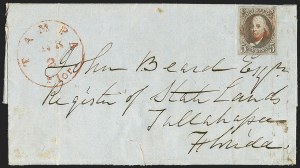 TAMPA
2
John Beard Esqr
Register of State Lands
Tallahassee
Florida